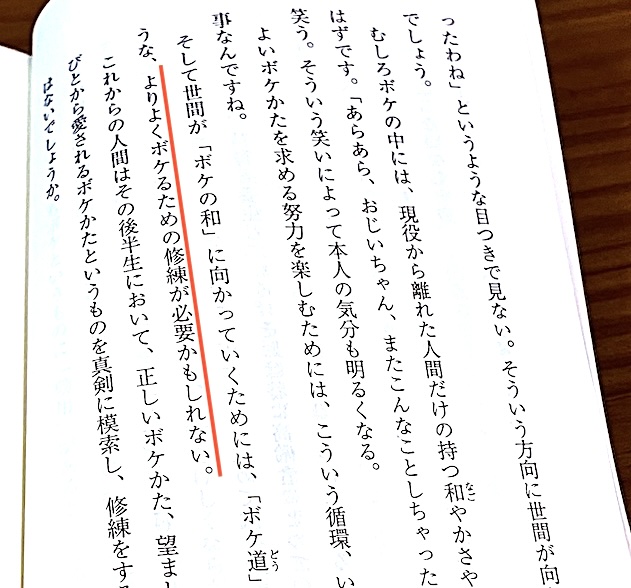 ったわね」というような目つきで見ない。そういう方向に世間が向
でしょう。
むしろボケの中には、現役から離れた人間だけの持つ和やかさや
はずです。「あらあら、おじいちゃん、またこんなことしちゃった
笑う。そういう笑いによって本人の気分も明るくなる。
よいボケかたを求める努力を楽しむためには、こういう循環、い
事なんですね。
そして世間が「ボケの和」に向かっていくためには、「ボケ道」
うな、よりよくボケるための修練が必要かもしれない。
これからの人間はその後半生において、正しいボケかた、望まし
びとから愛されるボケかたというものを真剣に模索し、修練をする
はないでしょうか。